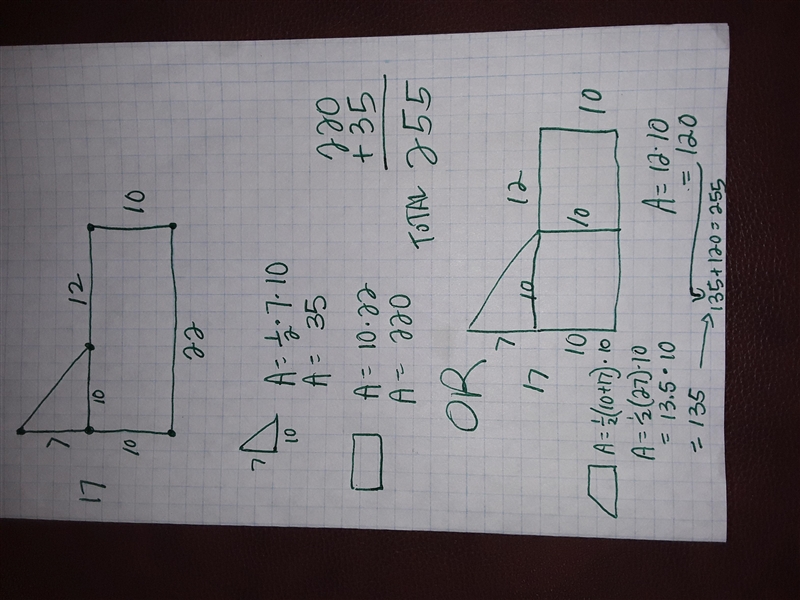 12
7
10
17
10
10
22
7
10
A = ½ · 7 · 10
A = 35
A = 10 · 22
A = 220
220
+ 35
TOTAL 255
OR
12
7
10
10
17
10
10
A = ½(10+17) · 10
A = ½(27) · 10
= 13.5 · 10
= 135
A = 12 · 10
= 120
135 + 120 = 255